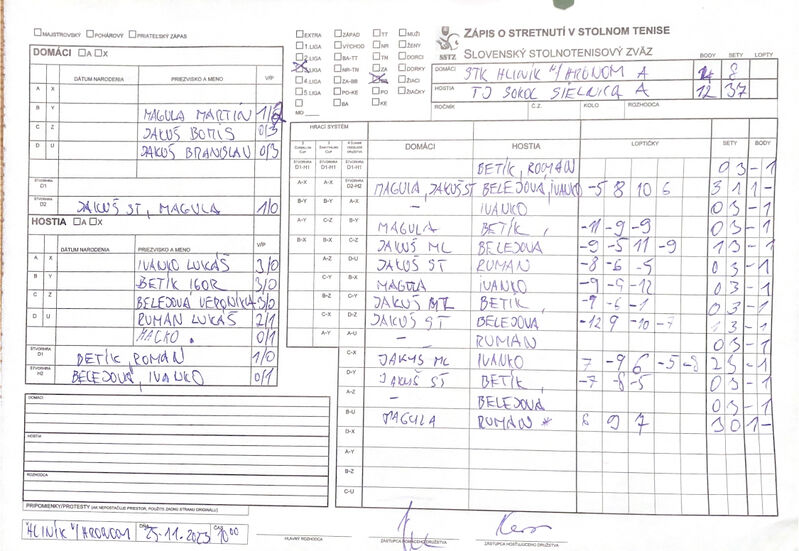 MAJSTROVSKÝ POHÁROVÝ PRIATEĽSKÝ ZÁPAS
DOMÁCI A X
DÁTUM NARODENIA PRIEZVISKO A MENO V/P
A X
B Y MAGULA MARTIN 1/2
C Z JAKUŠ BORIS 0/3
D U JAKUŠ BRANISLAV 0/3
ŠTVORHRA D1
ŠTVORHRA D2 JAKUŠ ST, MAGULA 1/0
HOSTIA A X
DÁTUM NARODENIA PRIEZVISKO A MENO V/P
A X IVANKO LUKÁŠ 3/0
B Y BETÍK IGOR 3/0
C Z BELEJOVÁ VERONIKA 3/0
D U RUMAN LUKÁŠ 2/1
MACKO 0/1
ŠTVORHRA D1 BETÍK, ROMAN 1/0
ŠTVORHRA H2 BELEJOVÁ, IVANKO 0/1
DOMÁCI
HOSTIA
ROZHODCA
PRIPOMIENKY/PROTESTY (AK NEPOSTAČUJE PRIESTOR, POUŽITE ZADNÚ STRANU ORIGINÁLU)
HLINÍK N/HRONOM DŇA 25.11.2023 ČAS 10:00
EXTRA ZÁPAD TT MUŽI
1.LIGA VÝCHOD NR ŽENY
2.LIGA BA-TT TN DORCI
3.LIGA NR-TN ZA DORKY
4.LIGA ZA-BB ŽIACI
5.LIGA PO-KE PO ŽIAČKY
BA KE
MO
SSTZ
ZÁPIS O STRETNUTÍ V STOLNOM TENISE
SLOVENSKÝ STOLNOTENISOVÝ ZVÄZ
BODY SETY LOPTY
DOMÁCI STK HLINÍK N/HRONOM A 4 8
HOSTIA TJ SOKOL SIELNICA A 12 37
ROČNÍK Č.Z. KOLO ROZHODCA
HRACÍ SYSTÉM DOMÁCI HOSTIA LOPTIČKY SETY BODY
ŠTVORHRA D1-H1 ŠTVORHRA D1-H1 ŠTVORHRA D1-H1 BETÍK, ROMAN 0 3 - 1
A-X A-X ŠTVORHRA D2-H2 MAGULA, JAKUŠ ST BELEJOVÁ, IVANKO -5 8 10 6 3 1 1 -
B-Y B-Y A-X - IVANKO 0 3 - 1
A-Y C-Z B-Y MAGULA BETÍK, -11 -9 -9 0 3 - 1
B-X B-X C-Z JAKUŠ ML BELEJOVA -9 -5 11 -9 1 3 - 1
A-Z D-U JAKUŠ ST RUMAN -8 -6 -5 0 3 - 1
C-Y B-X MAGULA IVANKO -9 -9 -12 0 3 - 1
B-Z C-Y JAKUŠ ML BETÍK, -9 -6 -1 0 3 - 1
C-X D-Z JAKUŠ ST BELEJOVA -12 9 -10 -7 1 3 - 1
A-Y A-U - RUMAN 0 3 - 1
C-X JAKUŠ ML IVANKO 7 -9 6 -5 -8 2 3 - 1
D-Y JAKUŠ ST BETÍK, -7 -8 -5 0 3 - 1
A-Z - BELEJOVA 0 3 - 1
B-U MAGULA RUMAN * 6 9 7 3 0 1 -
D-X
A-Y
B-Z
C-U
HLAVNÝ ROZHODCA ZÁSTUPCA DOMÁCEHO DRUŽSTVA ZÁSTUPCA HOSŤUJÚCEHO DRUŽSTVA